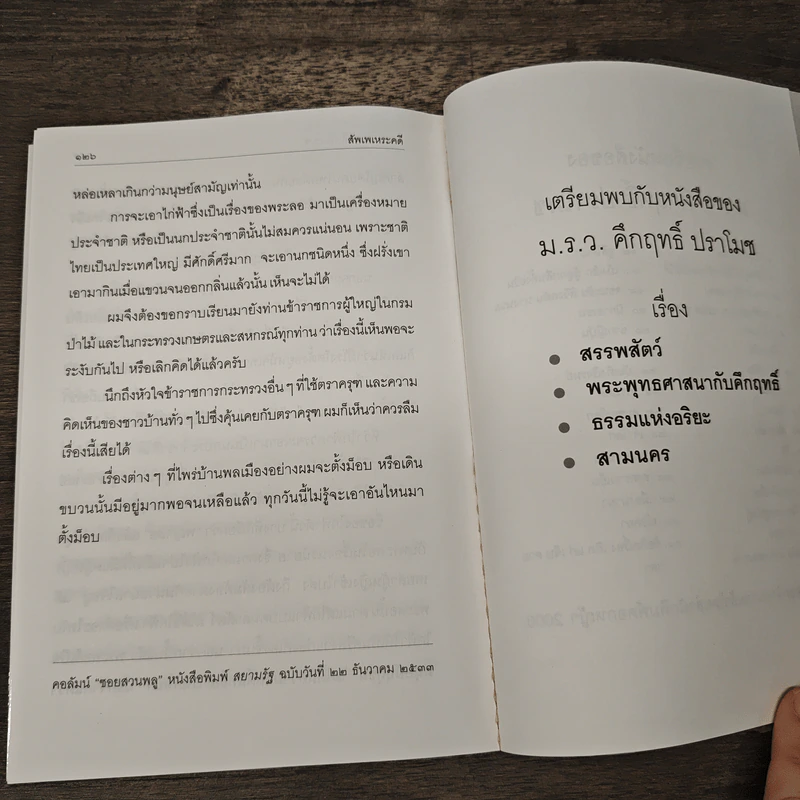 ๑๒๖
สัพเพเหระคดี
หล่อเหลาเกินกว่ามนุษย์สามัญเท่านั้น
การจะเอาไก่ฟ้าซึ่งเป็นเรื่องของพระลอ มาเป็นเครื่องหมาย
ประจำชาติ หรือเป็นนกประจำชาตินั้นไม่สมควรแน่นอน เพราะชาติ
ไทยเป็นประเทศใหญ่ มีศักดิ์ศรีมาก จะเอานกชนิดหนึ่ง ซึ่งฝรั่งเขา
เอามากินเมื่อแขวนจนออกกลิ่นแล้วนั้น เห็นจะไม่ได้
ผมจึงต้องขอกราบเรียนมายังท่านข้าราชการผู้ใหญ่ในกรม
ป่าไม้ และในกระทรวงเกษตรและสหกรณ์ทุกท่าน ว่าเรื่องนี้เห็นพอจะ
ระงับกันไป หรือเลิกคิดได้แล้วครับ
นึกถึงหัวใจข้าราชการกระทรวงอื่น ๆ ที่ใช้ตราครุฑ และความ
คิดเห็นของชาวบ้านทั่ว ๆ ไปซึ่งคุ้นเคยกับตราครุฑ ผมก็เห็นว่าควรลืม
เรื่องนี้เสียได้
เรื่องต่าง ๆ ที่ไพร่บ้านพลเมืองอย่างผมจะตั้งม็อบ หรือเดิน
ขบวนนั้นมีอยู่มากพอจนเหลือแล้ว ทุกวันนี้ไม่รู้จะเอาอันไหนมา
ตั้งม็อบ
คอลัมน์ “ซอยสวนพลู” หนังสือพิมพ์ สยามรัฐ ฉบับวันที่ ๒๒ ธันวาคม ๒๕๓๓
เตรียมพบกับหนังสือของ
ม.ร.ว. คึกฤทธิ์ ปราโมช
เรื่อง
● สรรพสัตว์
● พระพุทธศาสนากับคึกฤทธิ์
● ธรรมแห่งอริยะ
● สามนคร